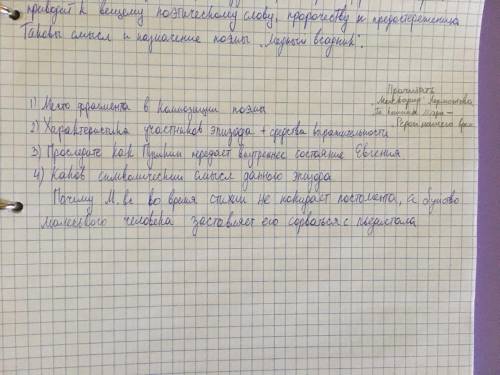 приводят к вещему поэтическому слову, пророчеству и предостережению
Таковы смысл и назначение поэмы „Медный всадник".
Прочитать
„Маскарад" Лермонтова
Герой нашего врем
1) Место фрагмента в композиции поэмы
2) Характеристика участников эпизода + средства выразительности
3) Проследите как Пушкин передает внутреннее состояние Евгения
4) Каков символический смысл данного эпизода
Почему М.вс во время стихии не покидает постамента, а бунтво
маленького человека заставляет его сорваться с пьедестала